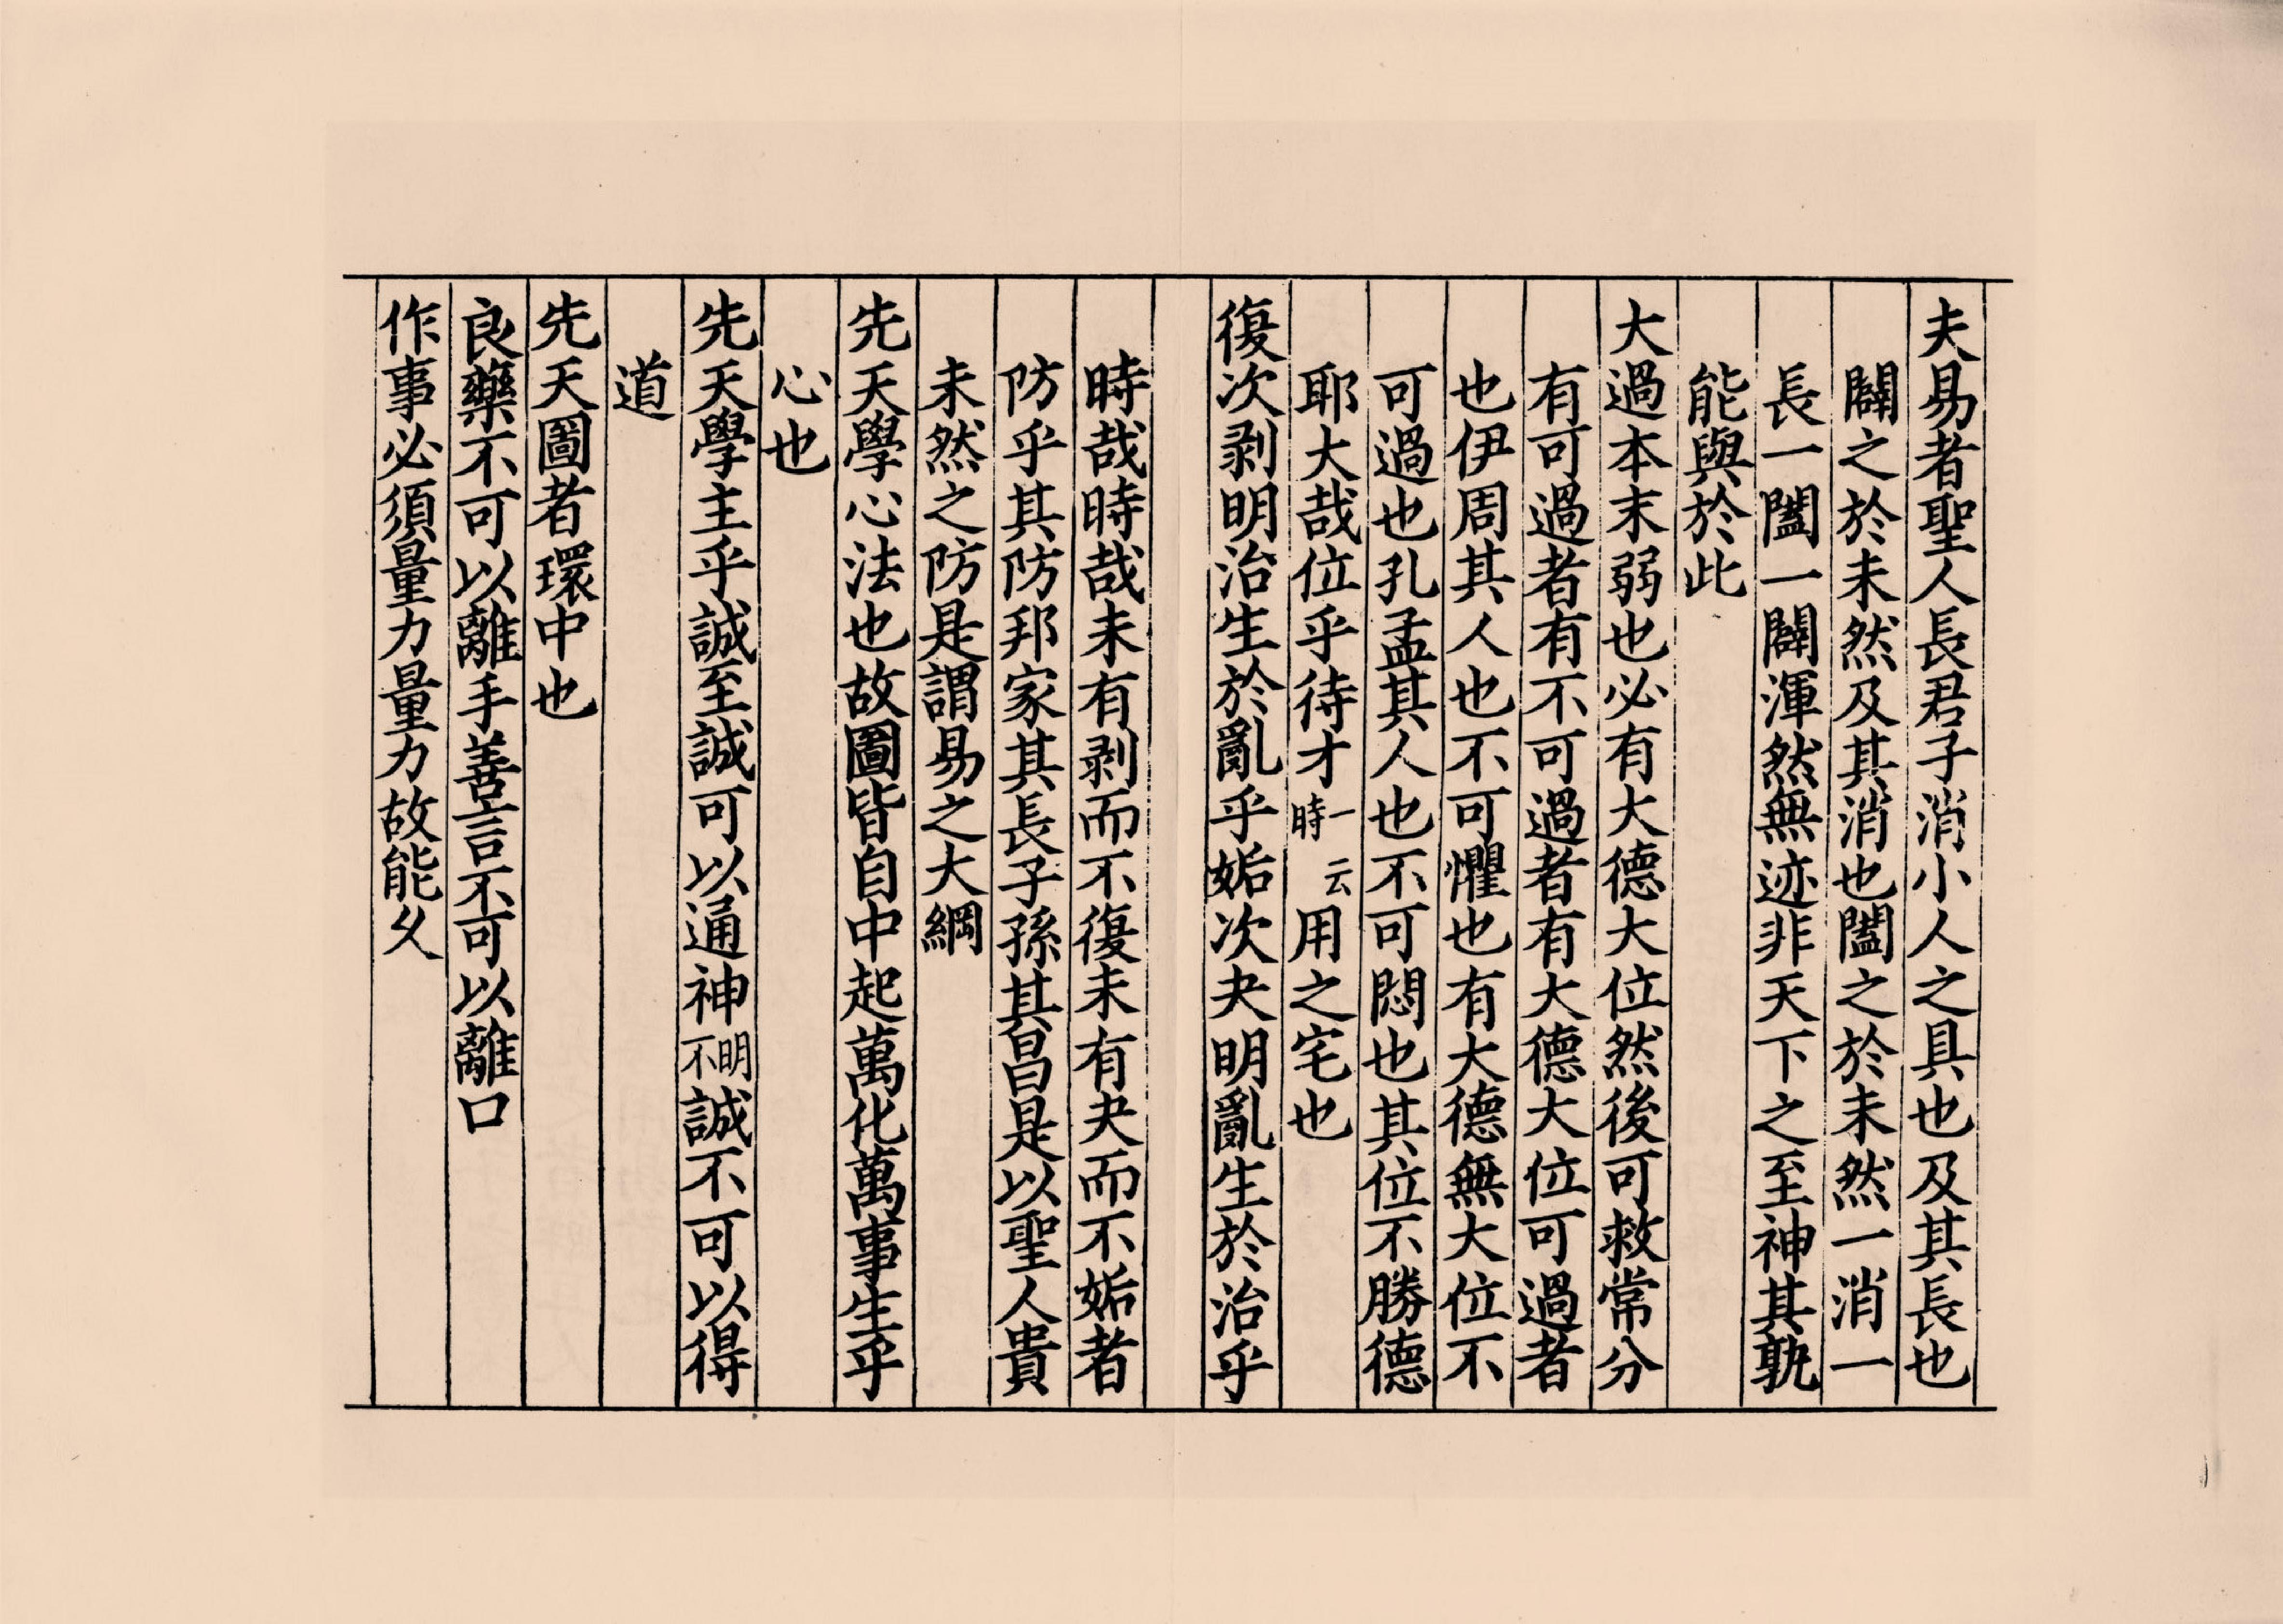 夫易者聖人長君子消小人之具也及其長也
闢之於未然及其消也闔之於未然一消一
長一闔一闢渾然無迹非天下之至神其孰
能與於此
大過本末弱也必有大德大位然後可救常分
有可過者有不可過者有大德大位可過者
也伊周其人也不可懼也有大德無大位不
可過也孔孟其人也不可悶也其位不勝德
耶大哉位乎待才一云時用之宅也
復次剥明治生於亂乎姤次夬明亂生於治乎
時哉時哉未有剥而不復未有夬而不姤者
防乎其防邦家其長子孫其昌是以聖人貴
未然之防是謂易之大綱
先天學心法也故圖皆自中起萬化萬事生乎
心也
先天學主乎誠至誠可以通神明不誠不可以得
道
先天圖者環中也
良藥不可以離手善言不可以離口
作事必須量力量力故能久